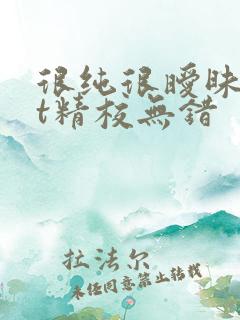 很纯很暧昧
t精校無错
拉法尔
未经同意禁止转载